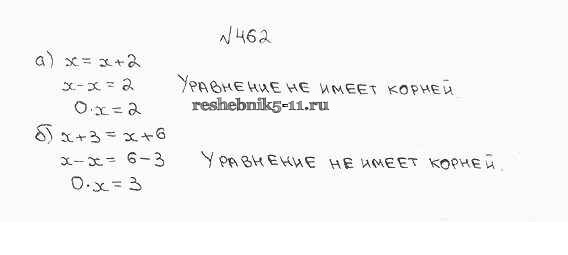 №462
а) x = x+2
x-x = 2 Уравнение не имеет корней.
0·x = 2
reshebnik5-11.ru
б) x+3 = x+6
x-x = 6-3 Уравнение не имеет корней.
0·x = 3